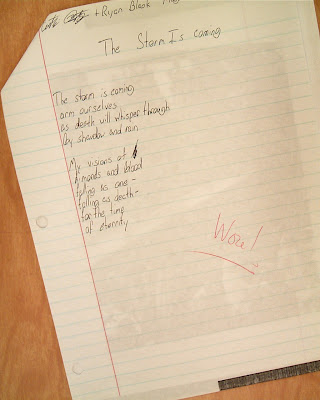 + Riyan Blaok
The Storm Is coming
The storm is coming
arm ourselves
as death will whisper through
by shawdow and rain
My visions of
dimonds and blood
falling as one -
falling as death -
for the time
of eternity
Wow!